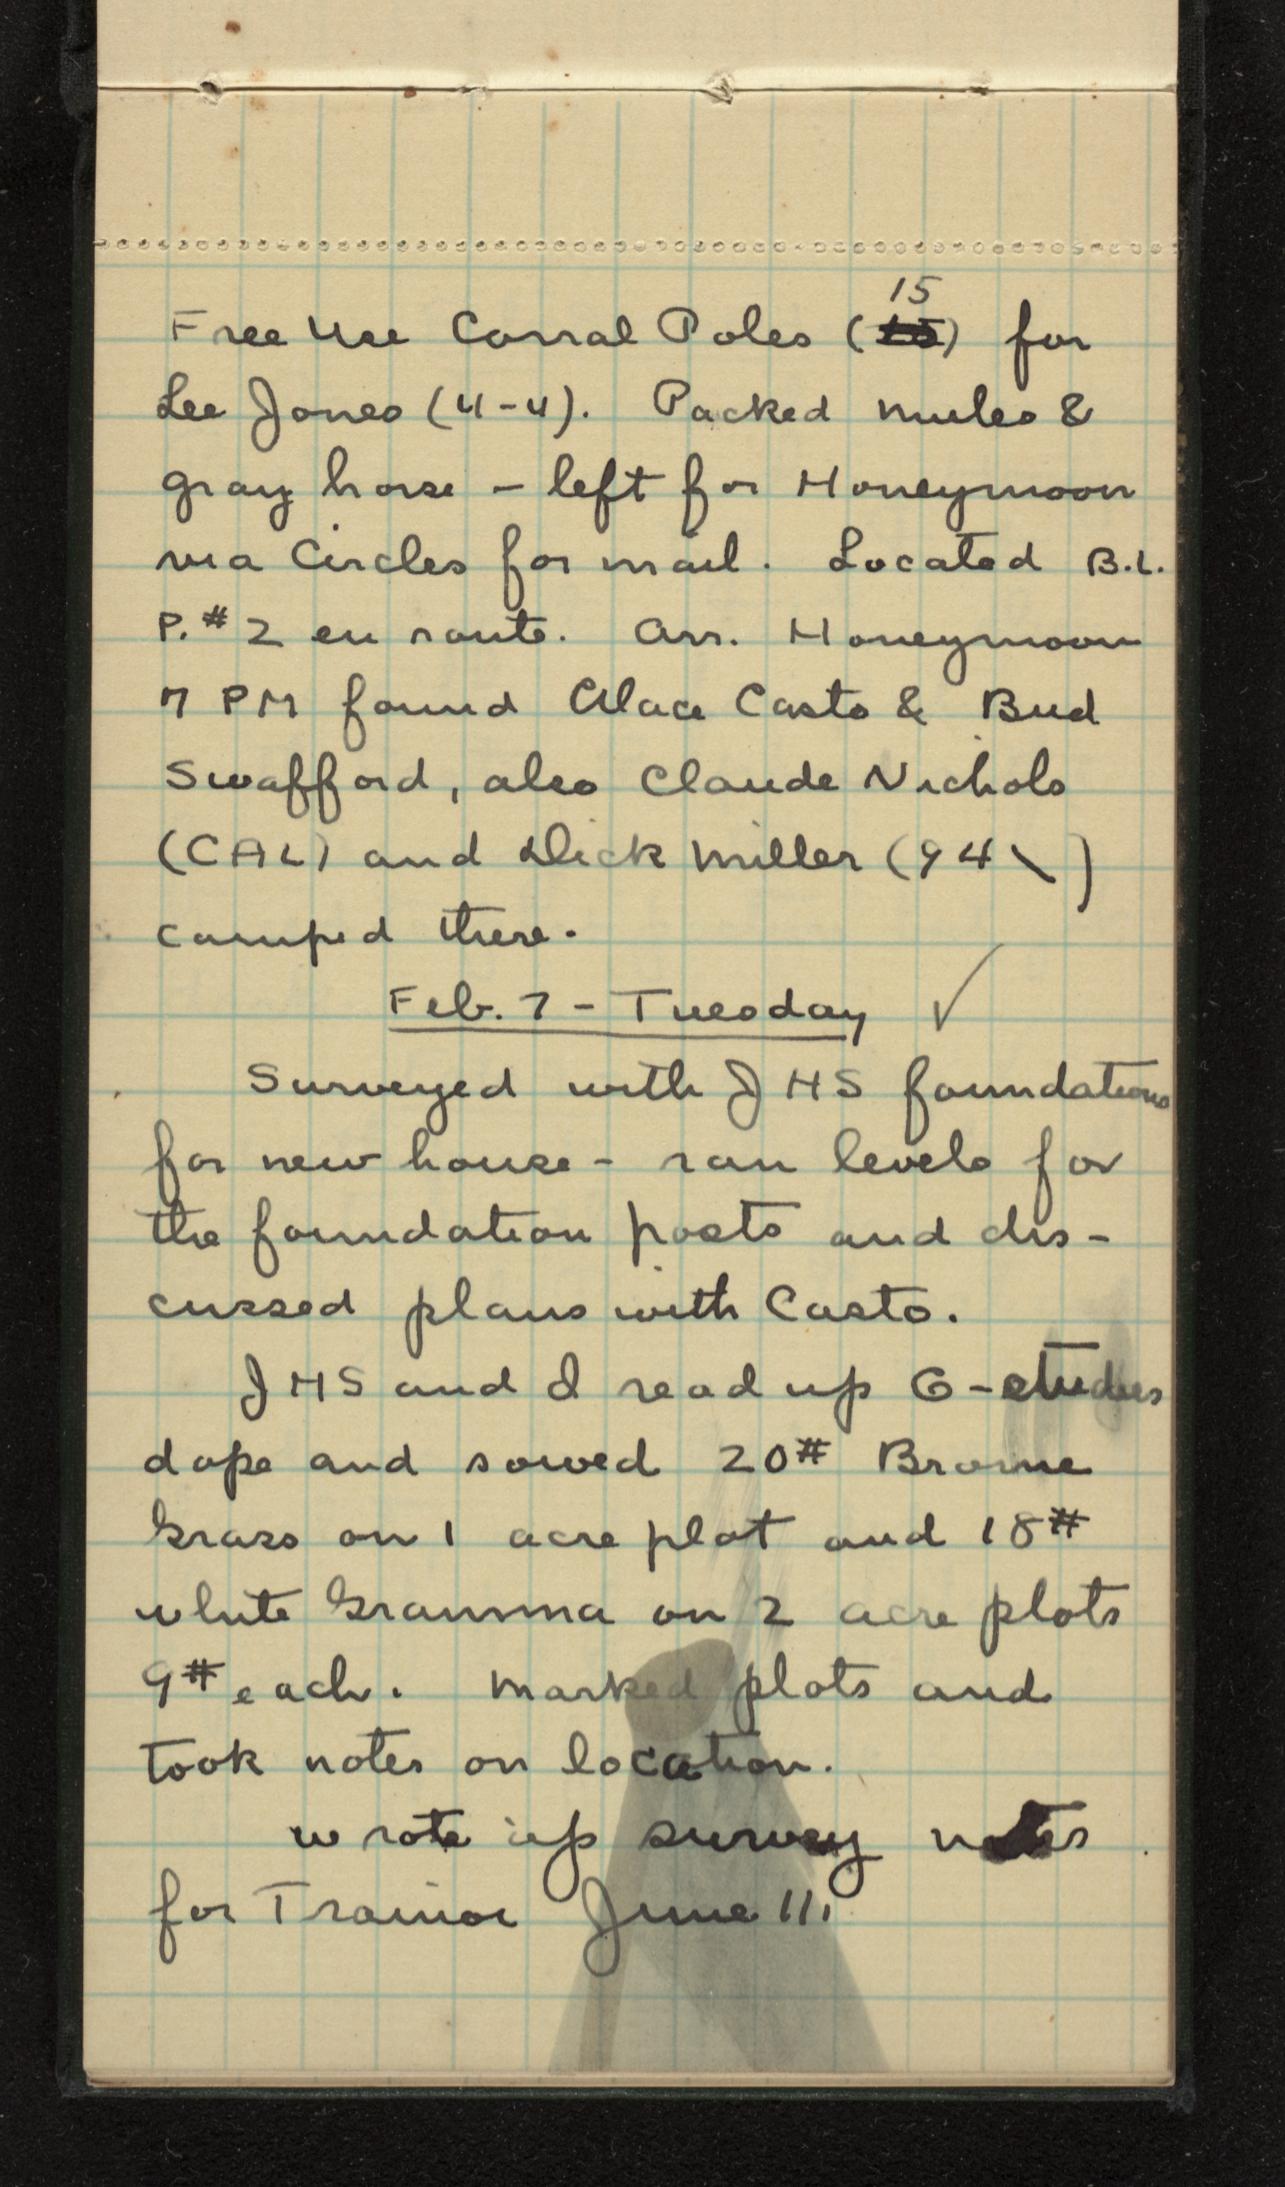 15
Free Use Corral Poles (15) for
Lee Jones (4-4). Packed mules &
gray horse - left for Honeymoon
via Circles for mail. Located B.L.
P. #2 en route. Arr. Honeymoon
7 PM found Casto & Bud
Swafford, also Claude Nichols
(CAL) and Dick Miller (94\)
camped there.
Feb. 7 - Tuesday ✓
Surveyed with JHS foundations
for new house - ran levels for
the foundation posts and dis-
cussed plans with Casto.
JHS and I read up G-studies
dope and sowed 20# Brome
Grass on 1 acre plot and 18#
white Gramma on 2 acre plots
9# each. Marked plots and
took notes on location.
Wrote up survey notes
for Trainor June 111